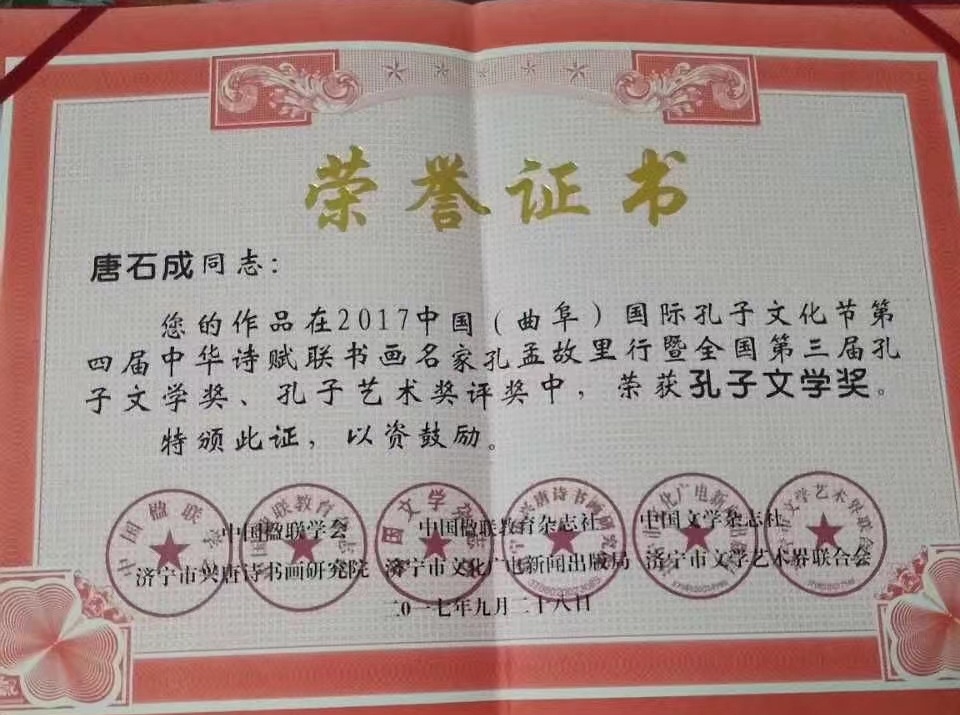 荣誉证书
唐石成同志：
您的作品在2017中国（曲阜）国际孔子文化节第
四届中华诗赋联书画名家孔孟故里行暨全国第三届孔
子文学奖、孔子艺术奖评奖中，荣获孔子文学奖。
特颁此证，以资鼓励。
中国楹联学会 中国楹联教育杂志社 中国文学杂志社
济宁市兴唐诗书画研究院 济宁市文化广电新闻出版局 济宁市文学艺术界联合会
二〇一七年九月二十八日